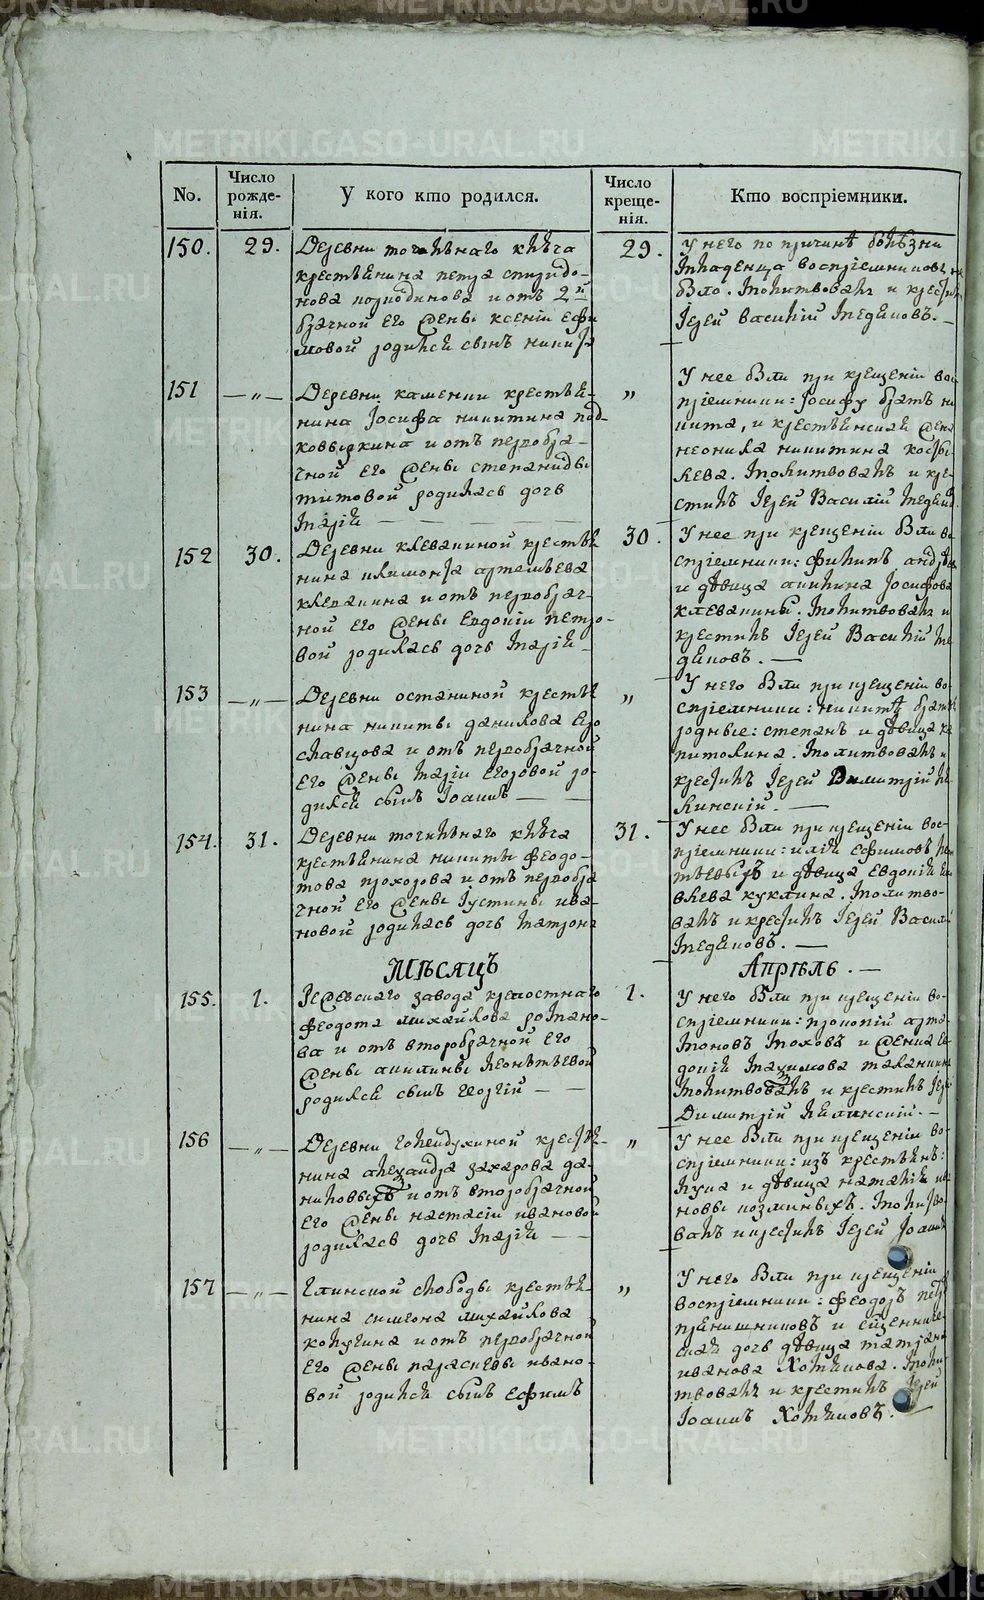 METRIKI.GASO-URAL.RU
No.
Число рожде-нія.
У кого кто родился.
Число креще-нія.
Кто воспріемники.
150.
29.
Деревни точильнаго ключа
крестьянина петра спиридо-
нова и отъ 2й
брачной его жены ксеніи ефи
мовой родился сынъ
29.
У него по причинѣ болѣзни
младенца воспріемниковъ не
было. Молитвовалъ и крестилъ
Іерей Василій
151
— „ —
Деревни каменки крестья-
нина Іосифа никитина под-
ковыркина и отъ первобра-
чной его жены степаниды
титовой родилась дочь
Марія
„
У нее были при крещеніи вос
пріемники: Іосифу братъ ни
кита, и крестьянская жена
неонила никитина
Молитвовалъ и кре-
стилъ Іерей Василій
152
30.
Деревни клевакиной крестья
нина артемьева
клевакина и отъ первобрач-
ной его жены Евдокіи петро-
вой родилась дочь Марія
30.
У нее при крещеніи были во
спріемники: филипъ андреевъ
и дѣвица акилина Іосифова
клевакины. Молитвовалъ и
крестилъ Іерей Василій
153
— „ —
Деревни останиной крестья
нина никиты данилова Яро
славцова и отъ первобрачной
его жены Маріи егоровой ро-
дился сынъ Іоаннъ
„
У него были при крещеніи во-
спріемники: никитѣ братъя
родные: степанъ и дѣвица ка
питолина. Молитвовалъ и
крестилъ Іерей Димитрій
154.
31.
Деревни точильнаго ключа
крестьянина никиты феодо-
това прохорова и отъ первобра
чной его жены Іустины ива-
новой родилась дочь Матрона
31.
У нее были при крещеніи вос-
пріемники: илія ефимовъ
и дѣвица Евдокія
куклина. Молитво-
валъ и крестилъ Іерей Васил
Мѣсяцъ
Апрѣль.
155.
1.
Режевскаго завода крепостнаго
феодота михайлова романо-
ва и отъ второбрачной его
жены акилины леонтьевой
родился сынъ георгій
1.
У него были при крещеніи во-
спріемники: прокопій арта-
моновъ и женка ев
докія Максимова
Молитвовалъ и крестилъ Іерей
Димитрій
156
— „ —
Деревни голендухиной крестья-
нина александра захарова да-
ниловыхъ и отъ второбрачной
его жены настасіи ивановой
родилась дочь Марія
„
У нее были при крещеніи во-
спріемники: изъ крестьянъ:
лука и дѣвица наталія ива
новы козминыхъ. Молитво-
валъ и крестилъ Іерей Іоаннъ
157
— „ —
Глинской слободы крестья-
нина симеона михайлова
и отъ первобрачной
его жены параскевы ивано-
вой родился сынъ Ефимъ
„
У него были при крещеніи
воспріемники: феодоръ петр
и священниче-
ская дочь дѣвица татіана
иванова Хотянова. Моли-
твовалъ и крестилъ Іерей
Іоаннъ Хотяновъ.